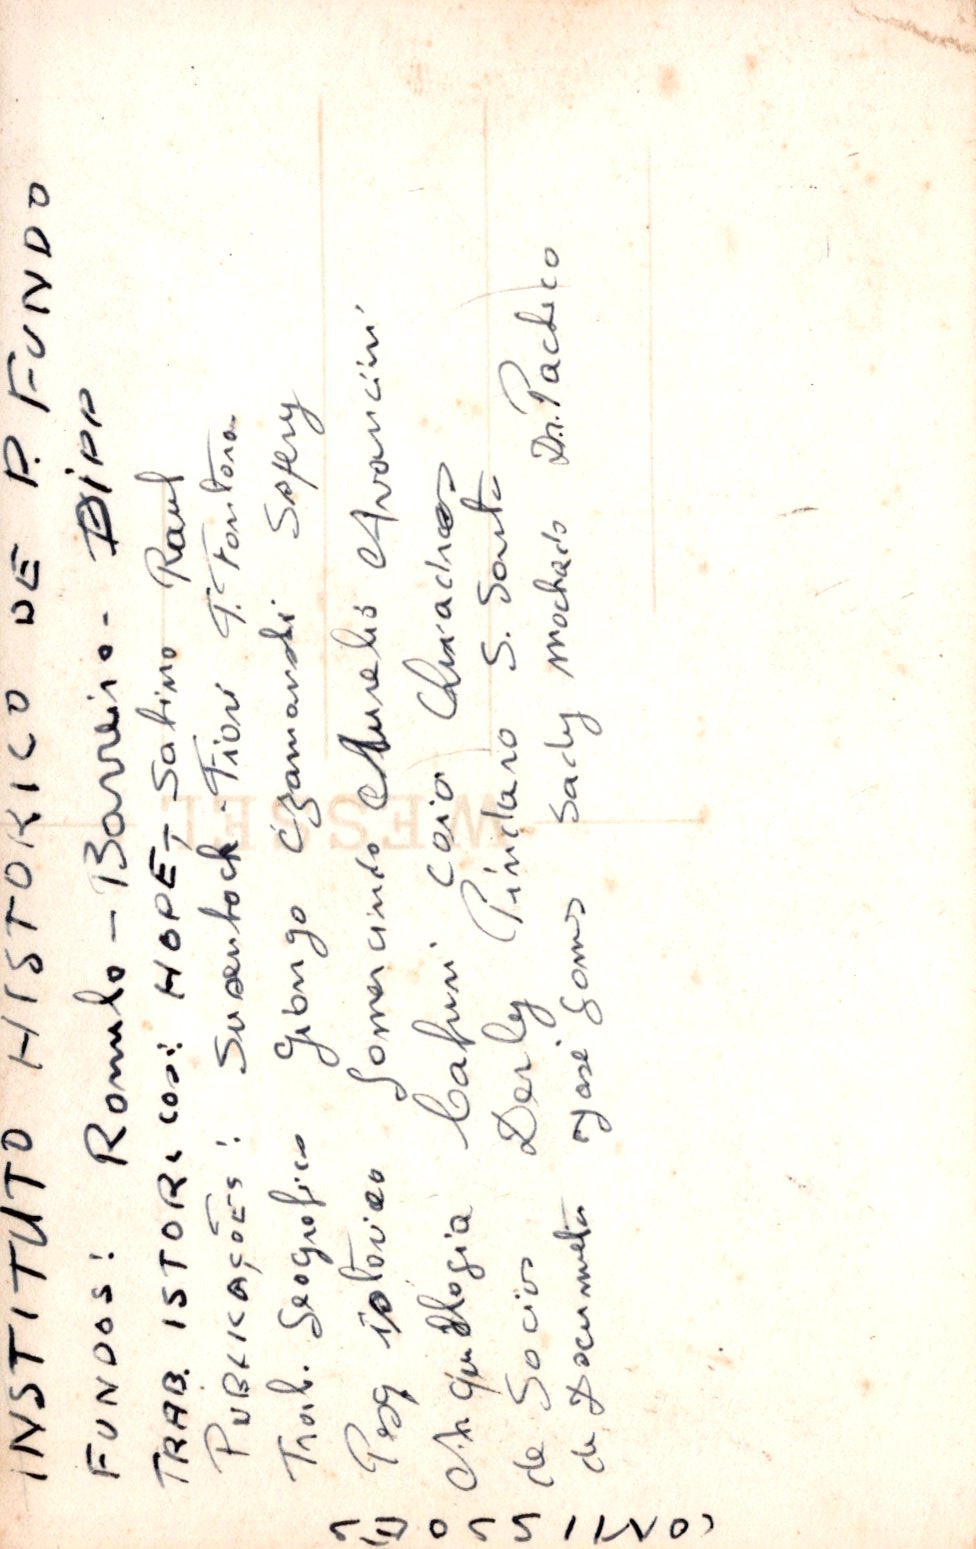 INSTITUTO HISTORICO DE P. FUNDO
FUNDOS: Romulo - Barreiro - DIPP
TRAB. ISTORICOS: HOPE, - Satino Raul
PUBLICAÇÕES: Sudenbock - Fiori T. Fontona
Trab. Geografico Giongo Czamanski Safery
Pesq istorico Gomercindo Aurelio Avancini
Arquilogia Cafruni Caio Churachas
de Socios Derly Pindaro S. Santos
de Documetos José Gomes Sady Machado Dr. Pacheco
COMISSOES
WESSEL